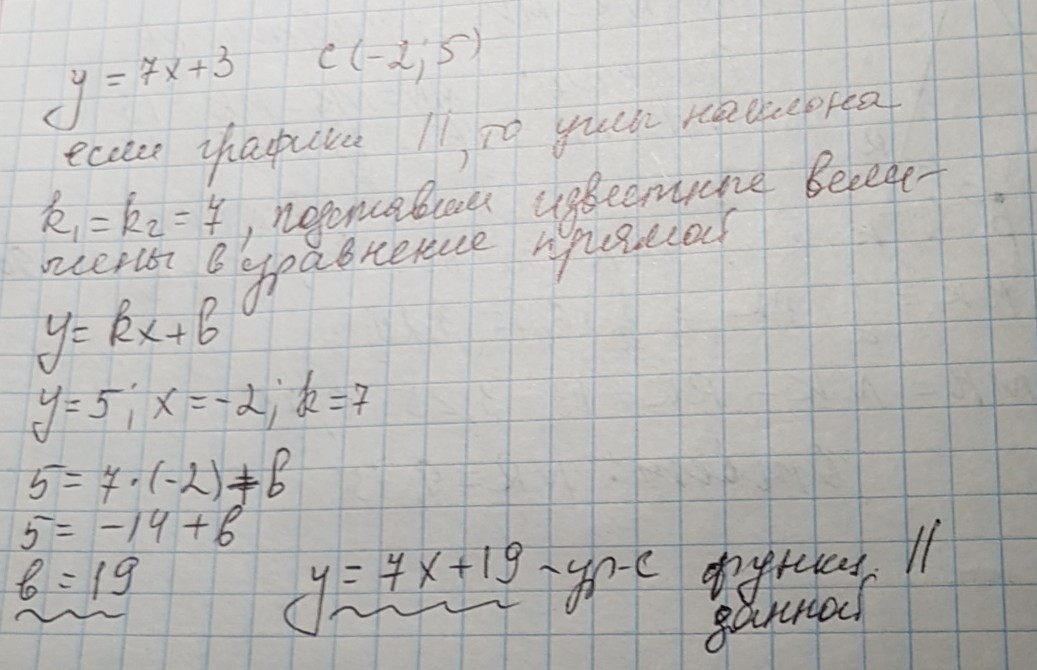 y = 7x+3 C(-2; 5)
если графики ||, то углы наклона
k₁ = k₂ = 7, подставим известные вели-
чены в уравнение прямой
y = kx+b
y = 5; x = -2; k = 7
5 = 7·(-2)+b
5 = -14+b
b = 19 y = 7x+19 - ур-е функц. ||
данной